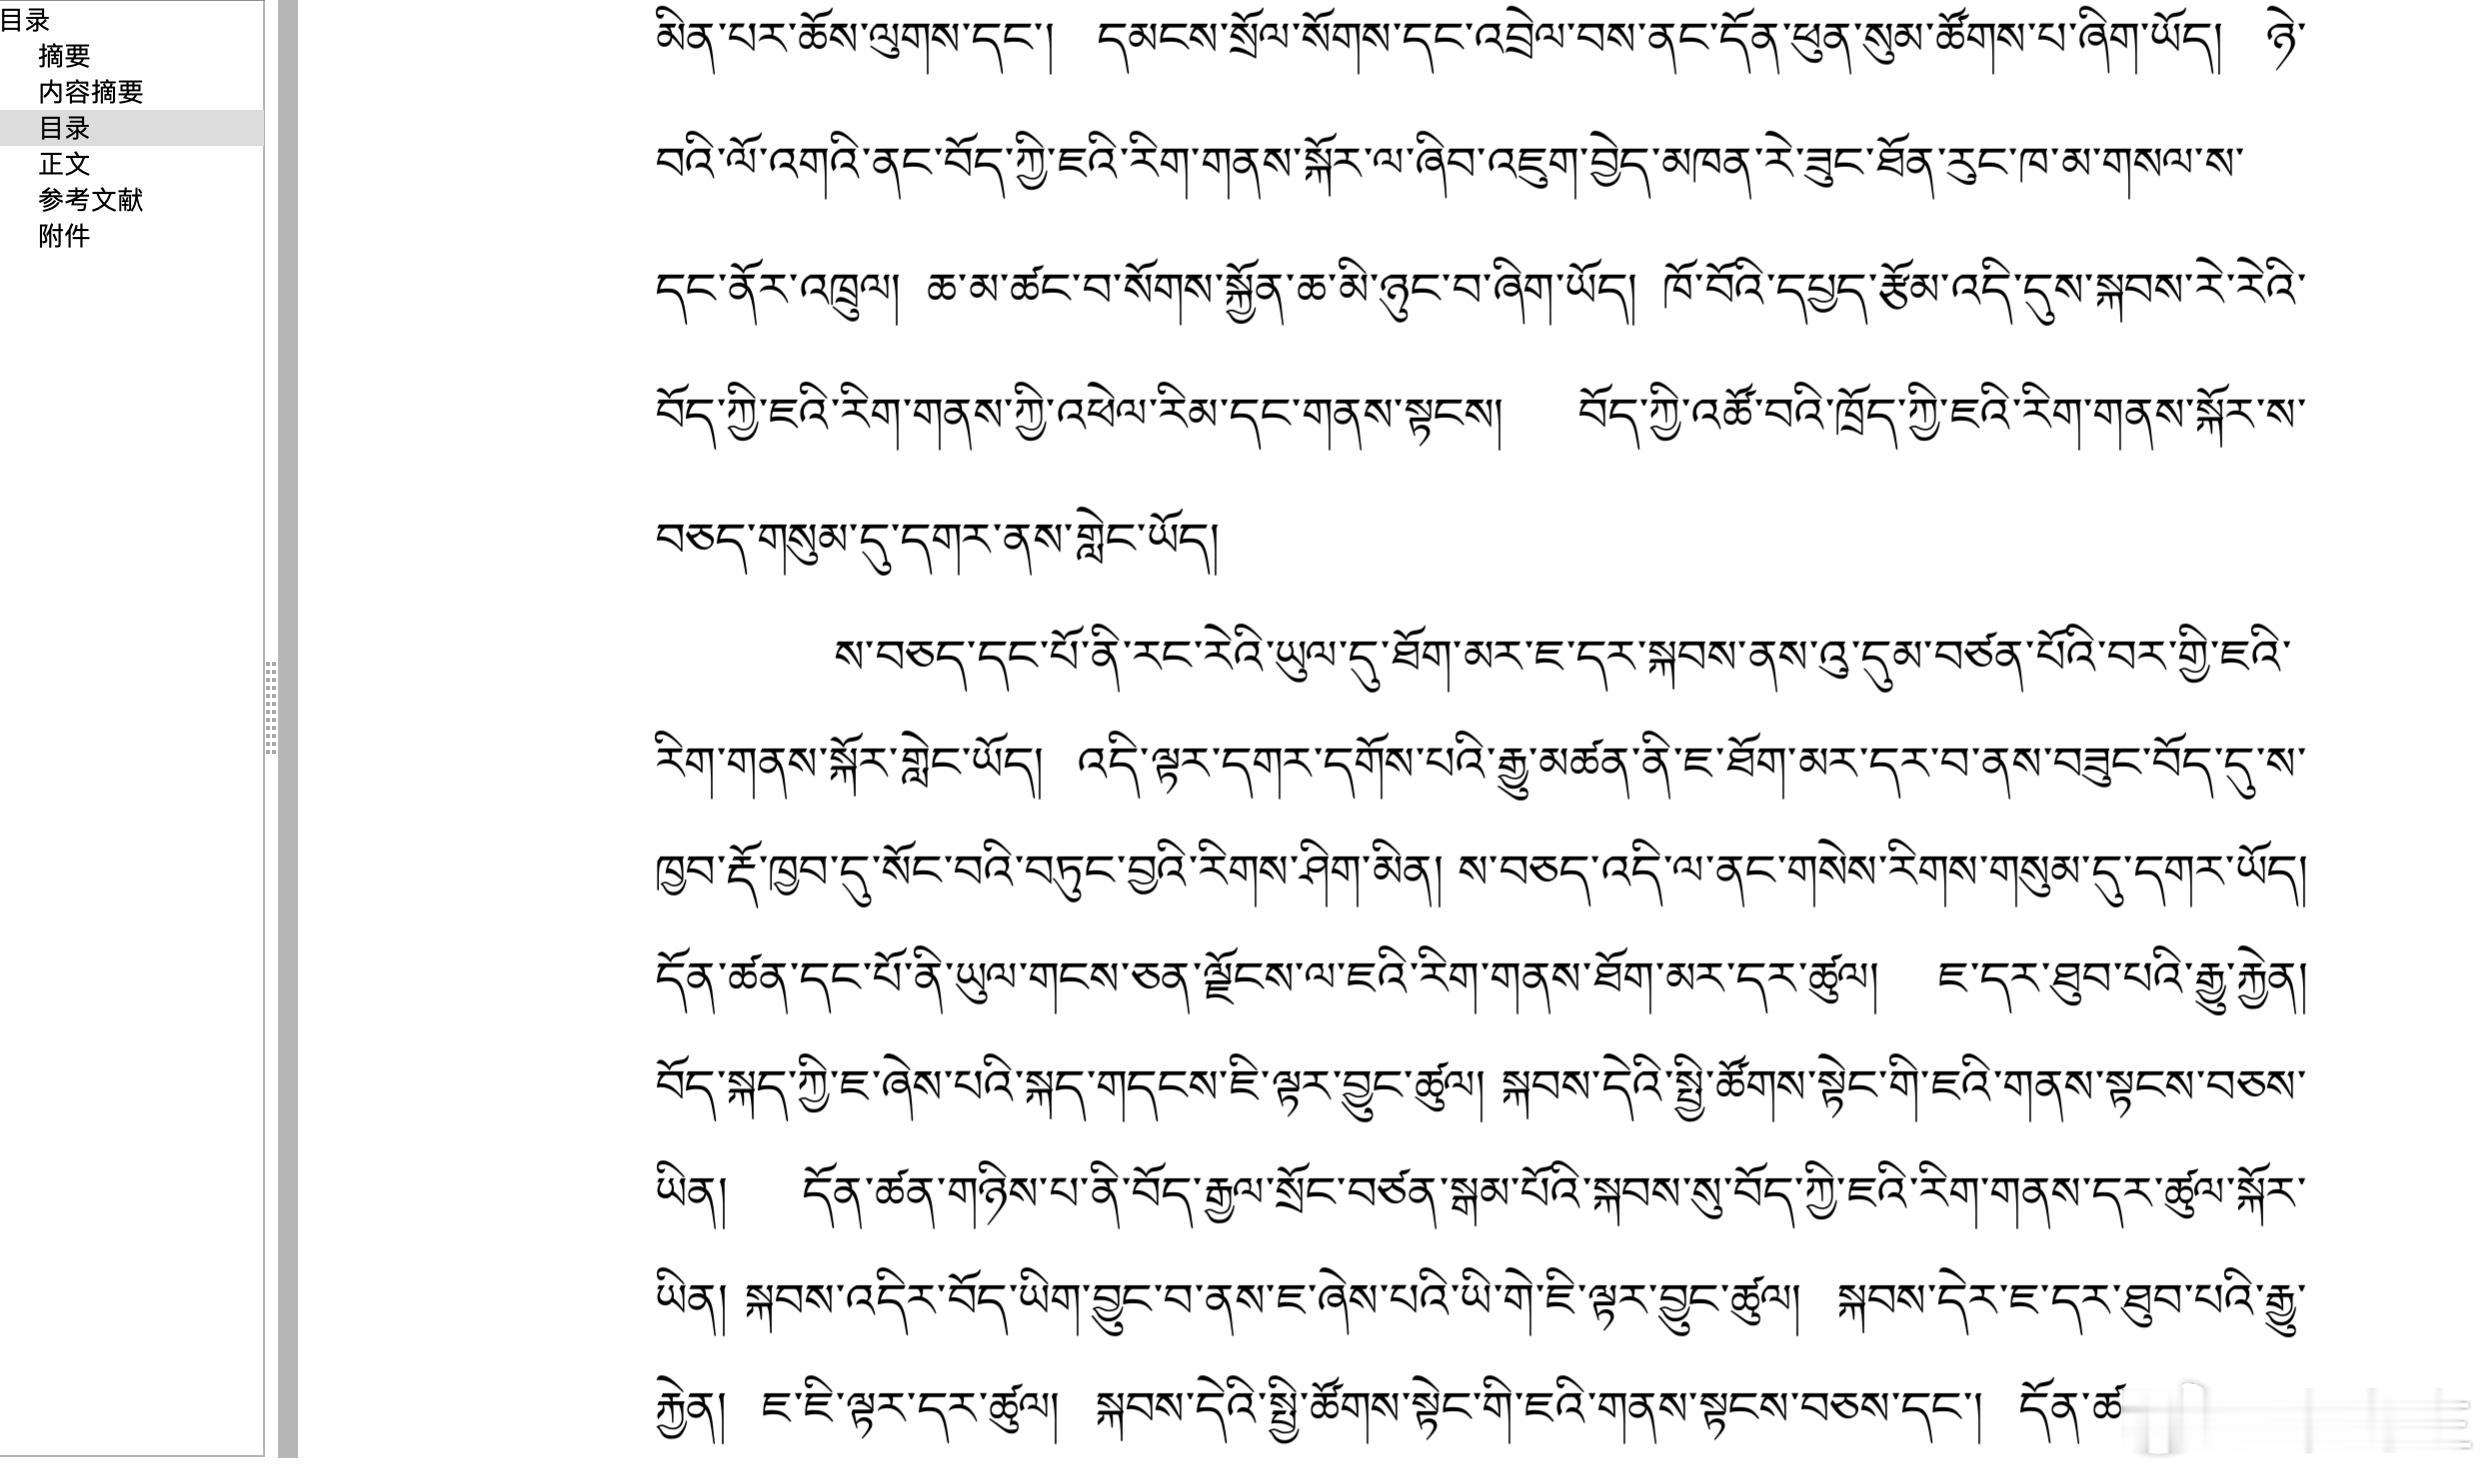 目录
摘要
内容摘要
目录
正文
参考文献
附件
མིན་པར་ཆོས་ལུགས་དང་། དམངས་སྲོལ་སོགས་དང་འབྲེལ་བས་ནང་དོན་ཕུན་སུམ་ཚོགས་པ་ཞིག་ཡོད། ཉེ་
བའི་ལོ་འགའི་ནང་བོད་ཀྱི་ཇའི་རིག་གནས་སྐོར་ལ་ཞིབ་འཇུག་བྱེད་མཁན་རེ་ཟུང་ཐོན་རུང་ཁ་མ་གསལ་ས་
དང་ནོར་འཁྲུལ། ཆ་མ་ཚང་བ་སོགས་སྐྱོན་ཆ་མི་ཉུང་བ་ཞིག་ཡོད། ཁོ་བོའི་དཔྱད་རྩོམ་འདི་དུས་སྐབས་རེ་རེའི་
བོད་ཀྱི་ཇའི་རིག་གནས་ཀྱི་འཕེལ་རིམ་དང་གནས་སྟངས། བོད་ཀྱི་འཚོ་བའི་ཁྲོད་ཀྱི་ཇའི་རིག་གནས་སྐོར་ས་
བཅད་གསུམ་དུ་དགར་ནས་གླེང་ཡོད།
ས་བཅད་དང་པོ་ནི་རང་རེའི་ཡུལ་དུ་ཐོག་མར་ཇ་དར་སྐབས་ནས་འུ་དུམ་བཙན་པོའི་བར་གྱི་ཇའི་
རིག་གནས་སྐོར་གླེང་ཡོད། འདི་ལྟར་དགར་དགོས་པའི་རྒྱུ་མཚན་ནི་ཇ་ཐོག་མར་དར་བ་ནས་བཟུང་བོད་དུ་ས་
ཁྱབ་རྡོ་ཁྱབ་དུ་སོང་བའི་བཏུང་བྱའི་རིགས་ཤིག་མིན། ས་བཅད་འདི་ལ་ནང་གསེས་རིགས་གསུམ་དུ་དགར་ཡོད།
དོན་ཚན་དང་པོ་ནི་ཡུལ་གངས་ཅན་ལྗོངས་ལ་ཇའི་རིག་གནས་ཐོག་མར་དར་ཚུལ། ཇ་དར་ཐུབ་པའི་རྒྱུ་རྐྱེན།
བོད་སྐད་ཀྱི་ཇ་ཞེས་པའི་སྐད་གདངས་ཇི་ལྟར་བྱུང་ཚུལ། སྐབས་དེའི་སྤྱི་ཚོགས་སྟེང་གི་ཇའི་གནས་སྟངས་བཅས་
ཡིན། དོན་ཚན་གཉིས་པ་ནི་བོད་རྒྱལ་སྲོང་བཙན་སྒམ་པོའི་སྐབས་སུ་བོད་ཀྱི་ཇའི་རིག་གནས་དར་ཚུལ་སྐོར་
ཡིན། སྐབས་འདིར་བོད་ཡིག་བྱུང་བ་ནས་ཇ་ཞེས་པའི་ཡི་གེ་ཇི་ལྟར་བྱུང་ཚུལ། སྐབས་དེར་ཇ་དར་ཐུབ་པའི་རྒྱུ་
རྐྱེན། ཇ་ཇི་ལྟར་དར་ཚུལ། སྐབས་དེའི་སྤྱི་ཚོགས་སྟེང་གི་ཇའི་གནས་སྟངས་བཅས་དང་། དོན་ཚ